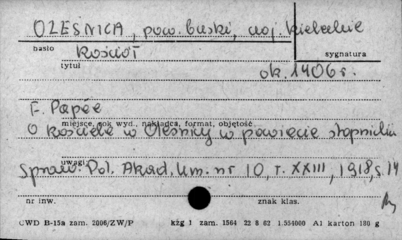 OLEŚNICA, pow. buski, woj. kieleckie
hasło
Kościół
sygnatura
tytuł
ok. 1406 r.
F. Papée
miejsce, rok wyd., nakładca, format, objętość
O kościele w Oleśnicy w powiecie stopnickim
uwagi
Spraw. Pol. Akad. Um. nr 10, T. XXIII, 1918, s. 14
nr inw.
znak klas.
CWD B-15a zam. 2006/ZW/P kzg 1 zam. 1564 22 8 62 1.554000 A1 karton 180 g